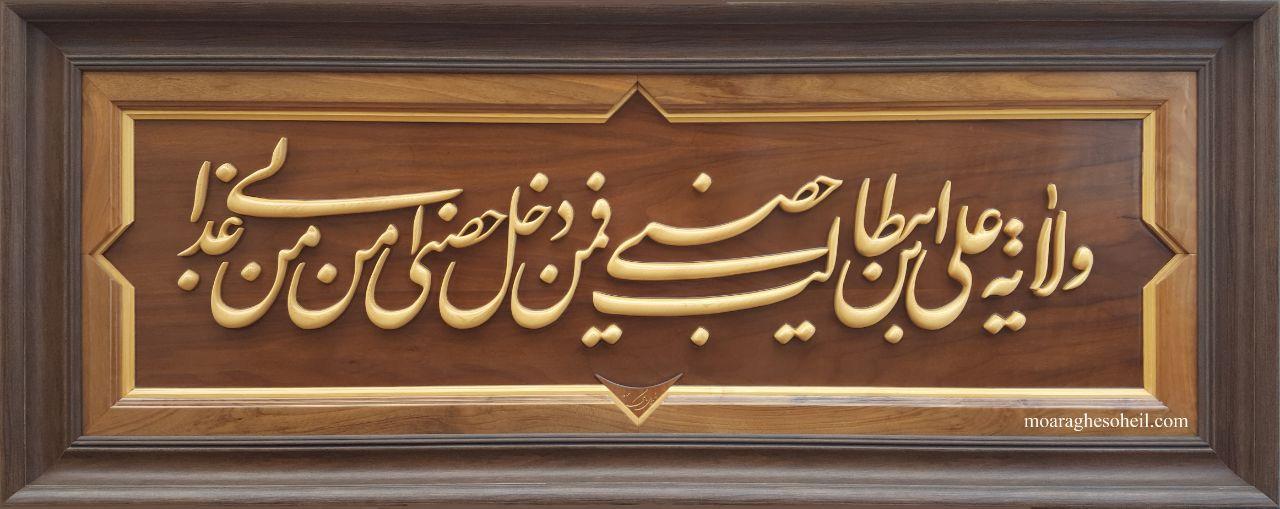 ولایة علی بن ابیطالب حصنی فمن دخل حصنی امن من عذابی
moaraghesoheil.com